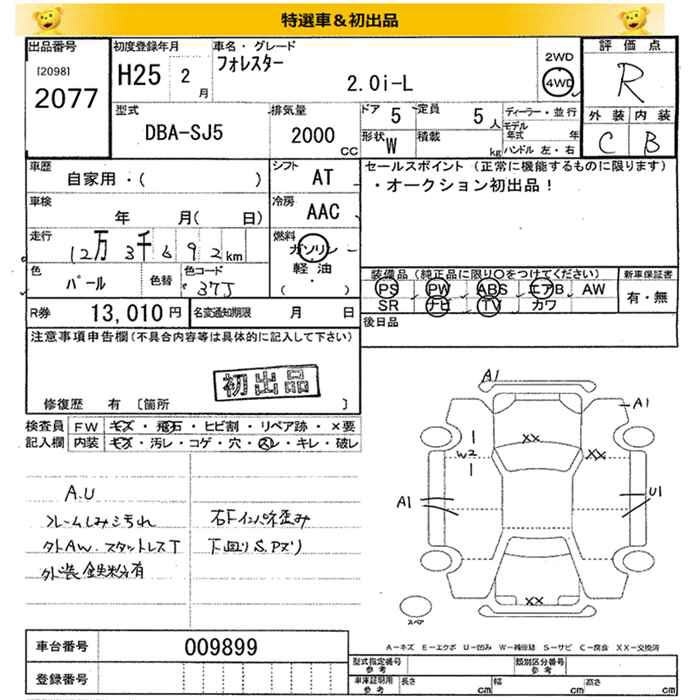 特選車＆初出品
出品番号
[2098]
2077
初度登録年月
H25 2月
車名・グレード
フォレスター
2.0i-L
2WD
4WD
評価点
R
外装 内装
C B
型式
DBA-SJ5
排気量
2000 CC
ドア 5
定員 5人
形状 W
積載 kg
ディーラー・並行
モデル
年式 年
ハンドル 左・右
車歴
自家用・( )
シフト
AT
セールスポイント（正常に機能するものに限ります）
・オークション初出品！
車検
年 月( 日)
冷房
AAC
走行
12万3千692km
燃料
ガソリン
軽油
(・)
色
パール
色替
色コード
37J
装備品（純正品に限り○をつけてください）
PS PW ABS エアB AW
SR ナビ TV カワ
新車保証書
有・無
R券 13,010円
名変通知期限 月 日
後日品
注意事項申告欄(不具合内容等は具体的に記入して下さい)
初出品
修復歴 有 [箇所 ]
検査員
記入欄
FW キズ・飛石・ヒビ割・リペア跡・×要
内装 キズ・汚レ・コゲ・穴・スレ・キレ・破レ
A.U
フレームしみ汚れ
タトAW.スタットレスT
外装鉄粉有
右Fインパネ歪み
下回りS.Pズリ
A1
A1
XX
1
W2
1
XX
A1
U1
XX
スペア
A－キズ E－エクボ U－凹み W－補修跡 S－サビ C－腐食 XX－交換済
車台番号 009899
登録番号
型式指定番号
参考
類別区分番号
参考
車庫証明用
参考
長さ cm
幅 cm
高さ cm